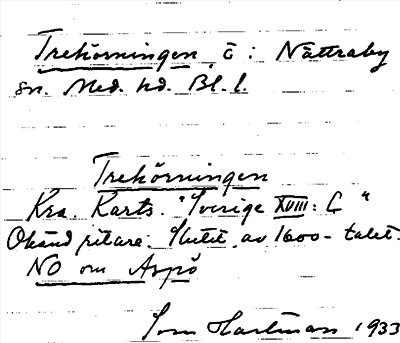 Trehörningen, ö: Nättraby
sn. Med. hd. Bl. l.
Trehörningen
Kra. Karts. "Sverige XVIII: C"
Okänd ritare. Slutet av 1600-talet.
NO om Aspö
Sven Hartman 1933